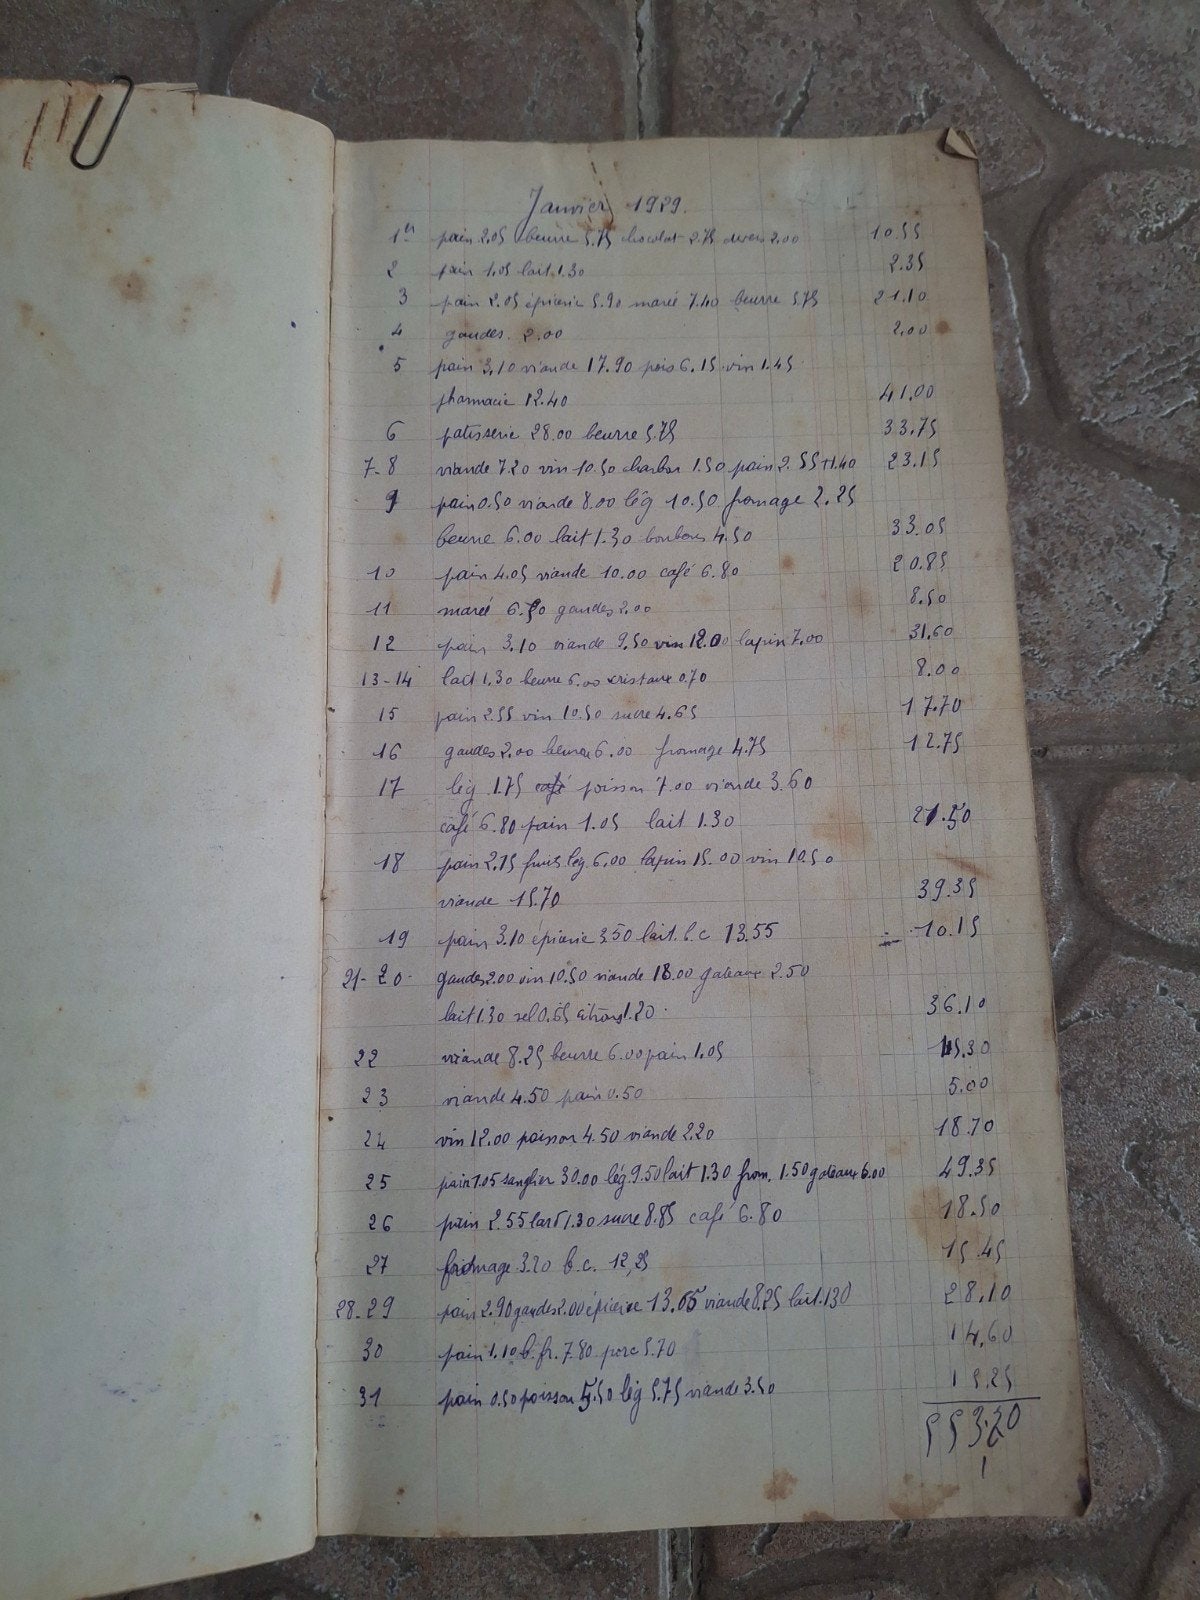 Janvier 1929.
1er pain 2.05 beurre 5.75 chocolat 2.75 divers 2.00 10.55
2 pain 1.05 lait 1.30 2.35
3 pain 2.05 épicerie 5.90 marée 7.40 beurre 5.75 21.10
4 gaudes. 2.00 2.00
5 pain 3.10 viande 17.90 pois 6.15 vin 1.45
pharmacie 12.40 41.00
6 patisserie 28.00 beurre 5.75 33.75
7-8 viande 7.20 vin 10.50 charbon 1.50 pain 2.55+1.40 23.15
9 pain 0.50 viande 8.00 lég 10.50 fromage 2.25
beurre 6.00 lait 1.30 bonbons 4.50 33.05
10 pain 4.05 viande 10.00 café 6.80 20.85
11 marée 6.50 gaudes 2.00 8.50
12 pain 3.10 viande 9.50 vin 12.00 lapin 7.00 31.60
13-14 lait 1.30 beurre 6.00 cristaux 0.70 8.00
15 pain 2.55 vin 10.50 sucre 4.65 17.70
16 gaudes 2.00 beurre 6.00 fromage 4.75 12.75
17 lég 1.75 café poisson 7.00 viande 3.60
café 6.80 pain 1.05 lait 1.30 21.50
18 pain 2.15 lég. 6.00 lapin 15.00 vin 10.50
viande 15.70 39.35
19 pain 3.10 épicerie 3.50 lait b.c 13.55 10.15
21-20- gaudes 2.00 vin 10.50 viande 18.00 gateaux 2.50
lait 1.30 sel 0.65 citrons 1.20 36.10
22 viande 8.25 beurre 6.00 pain 1.05 15.30
23 viande 4.50 pain 0.50 5.00
24 vin 12.00 poisson 4.50 viande 2.20 18.70
25 pain 1.05 sanglier 30.00 lég. 9.50 lait 1.30 from. 1.50 gateaux 6.00 49.35
26 pain 2.55 lard 1.30 sucre 8.85 café 6.80 18.50
27 fromage 3.20 b.c. 12,25 15.45
28-29 pain 2.90 gaudes 2.00 épicerie 13.65 viande 8.25 lait.130 28.10
30 pain 1.10 b.fr. 7.80 porc 5.70 14.60
31 pain 0.50 poisson 5.50 lég 5.75 viande 3.50 15.25
553.20
1